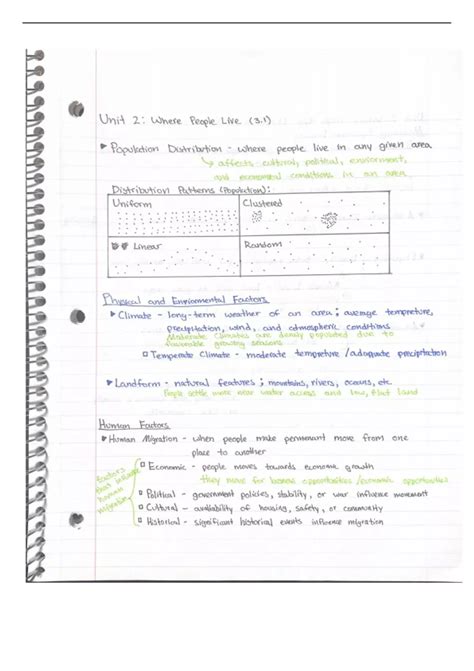 Unit 2: Where People Live (3.1)
▸ Population Distribution - where people live in any given area
↳ affects cultural, political, environment,
and economical conditions in an area
Distribution Patterns (Population):
Uniform Clustered
Linear Random
Physical and Enviromental Factors
▸ Climate - long-term weather of an area; average tempreture,
precipitation, wind, and atmospheric conditions
Moderate climates are densly populated due to
favorable growing seasons
□ Temperate Climate - moderate tempreture / adaquate precipitation
▸ Landform - natural features; mountains, rivers, oceans, etc.
People settle more near water access and low, flat land
Human Factors
▸ Human Migration - when people make permanant move from one
place to another
Factors that influence human migration
□ Economic - people moves towards economic growth
they move for better opportunities / economic opportunities
□ Political - government policies, stability, or war influence movement
□ Cultural - availability of housing, safety, or community
□ Historical - significant historical events influence migration